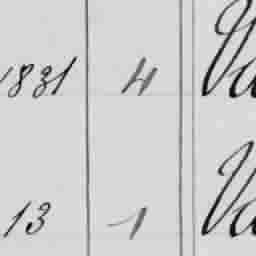 1831 4 Va
13 1 Va